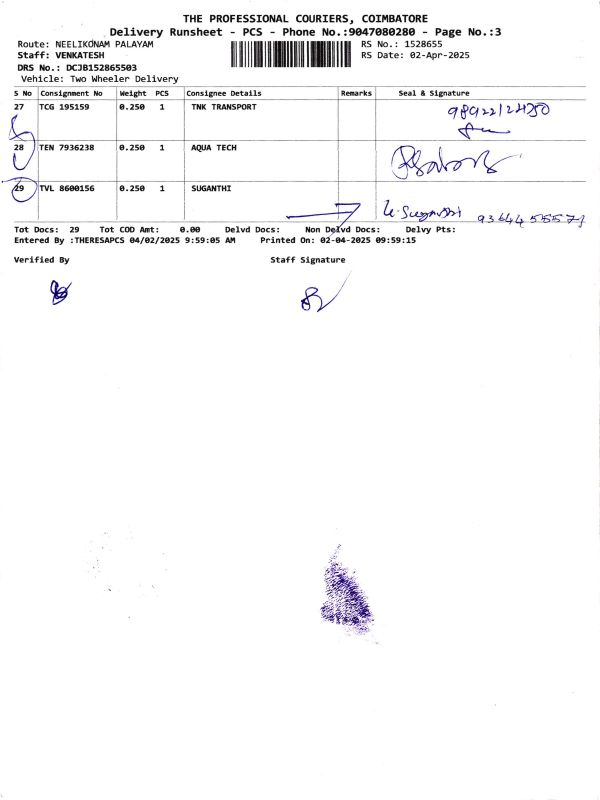 THE PROFESSIONAL COURIERS, COIMBATORE
Delivery Runsheet - PCS - Phone No.:9047080280 - Page No.:3
Route: NEELIKONAM PALAYAM
RS No.: 1528655
Staff: VENKATESH
RS Date: 02-Apr-2025
DRS No.: DCJB152865503
Vehicle: Two Wheeler Delivery
S No Consignment No Weight PCS Consignee Details Remarks Seal & Signature
27 TCG 195159 0.250 1 TNK TRANSPORT
28 TEN 7936238 0.250 1 AQUA TECH
29 TVL 8600156 0.250 1 SUGANTHI
Tot Docs: 29 Tot COD Amt: 0.00 Delvd Docs: Non Delvd Docs: Delvy Pts:
Entered By :THERESAPCS 04/02/2025 9:59:05 AM Printed On: 02-04-2025 09:59:15
Verified By Staff Signature